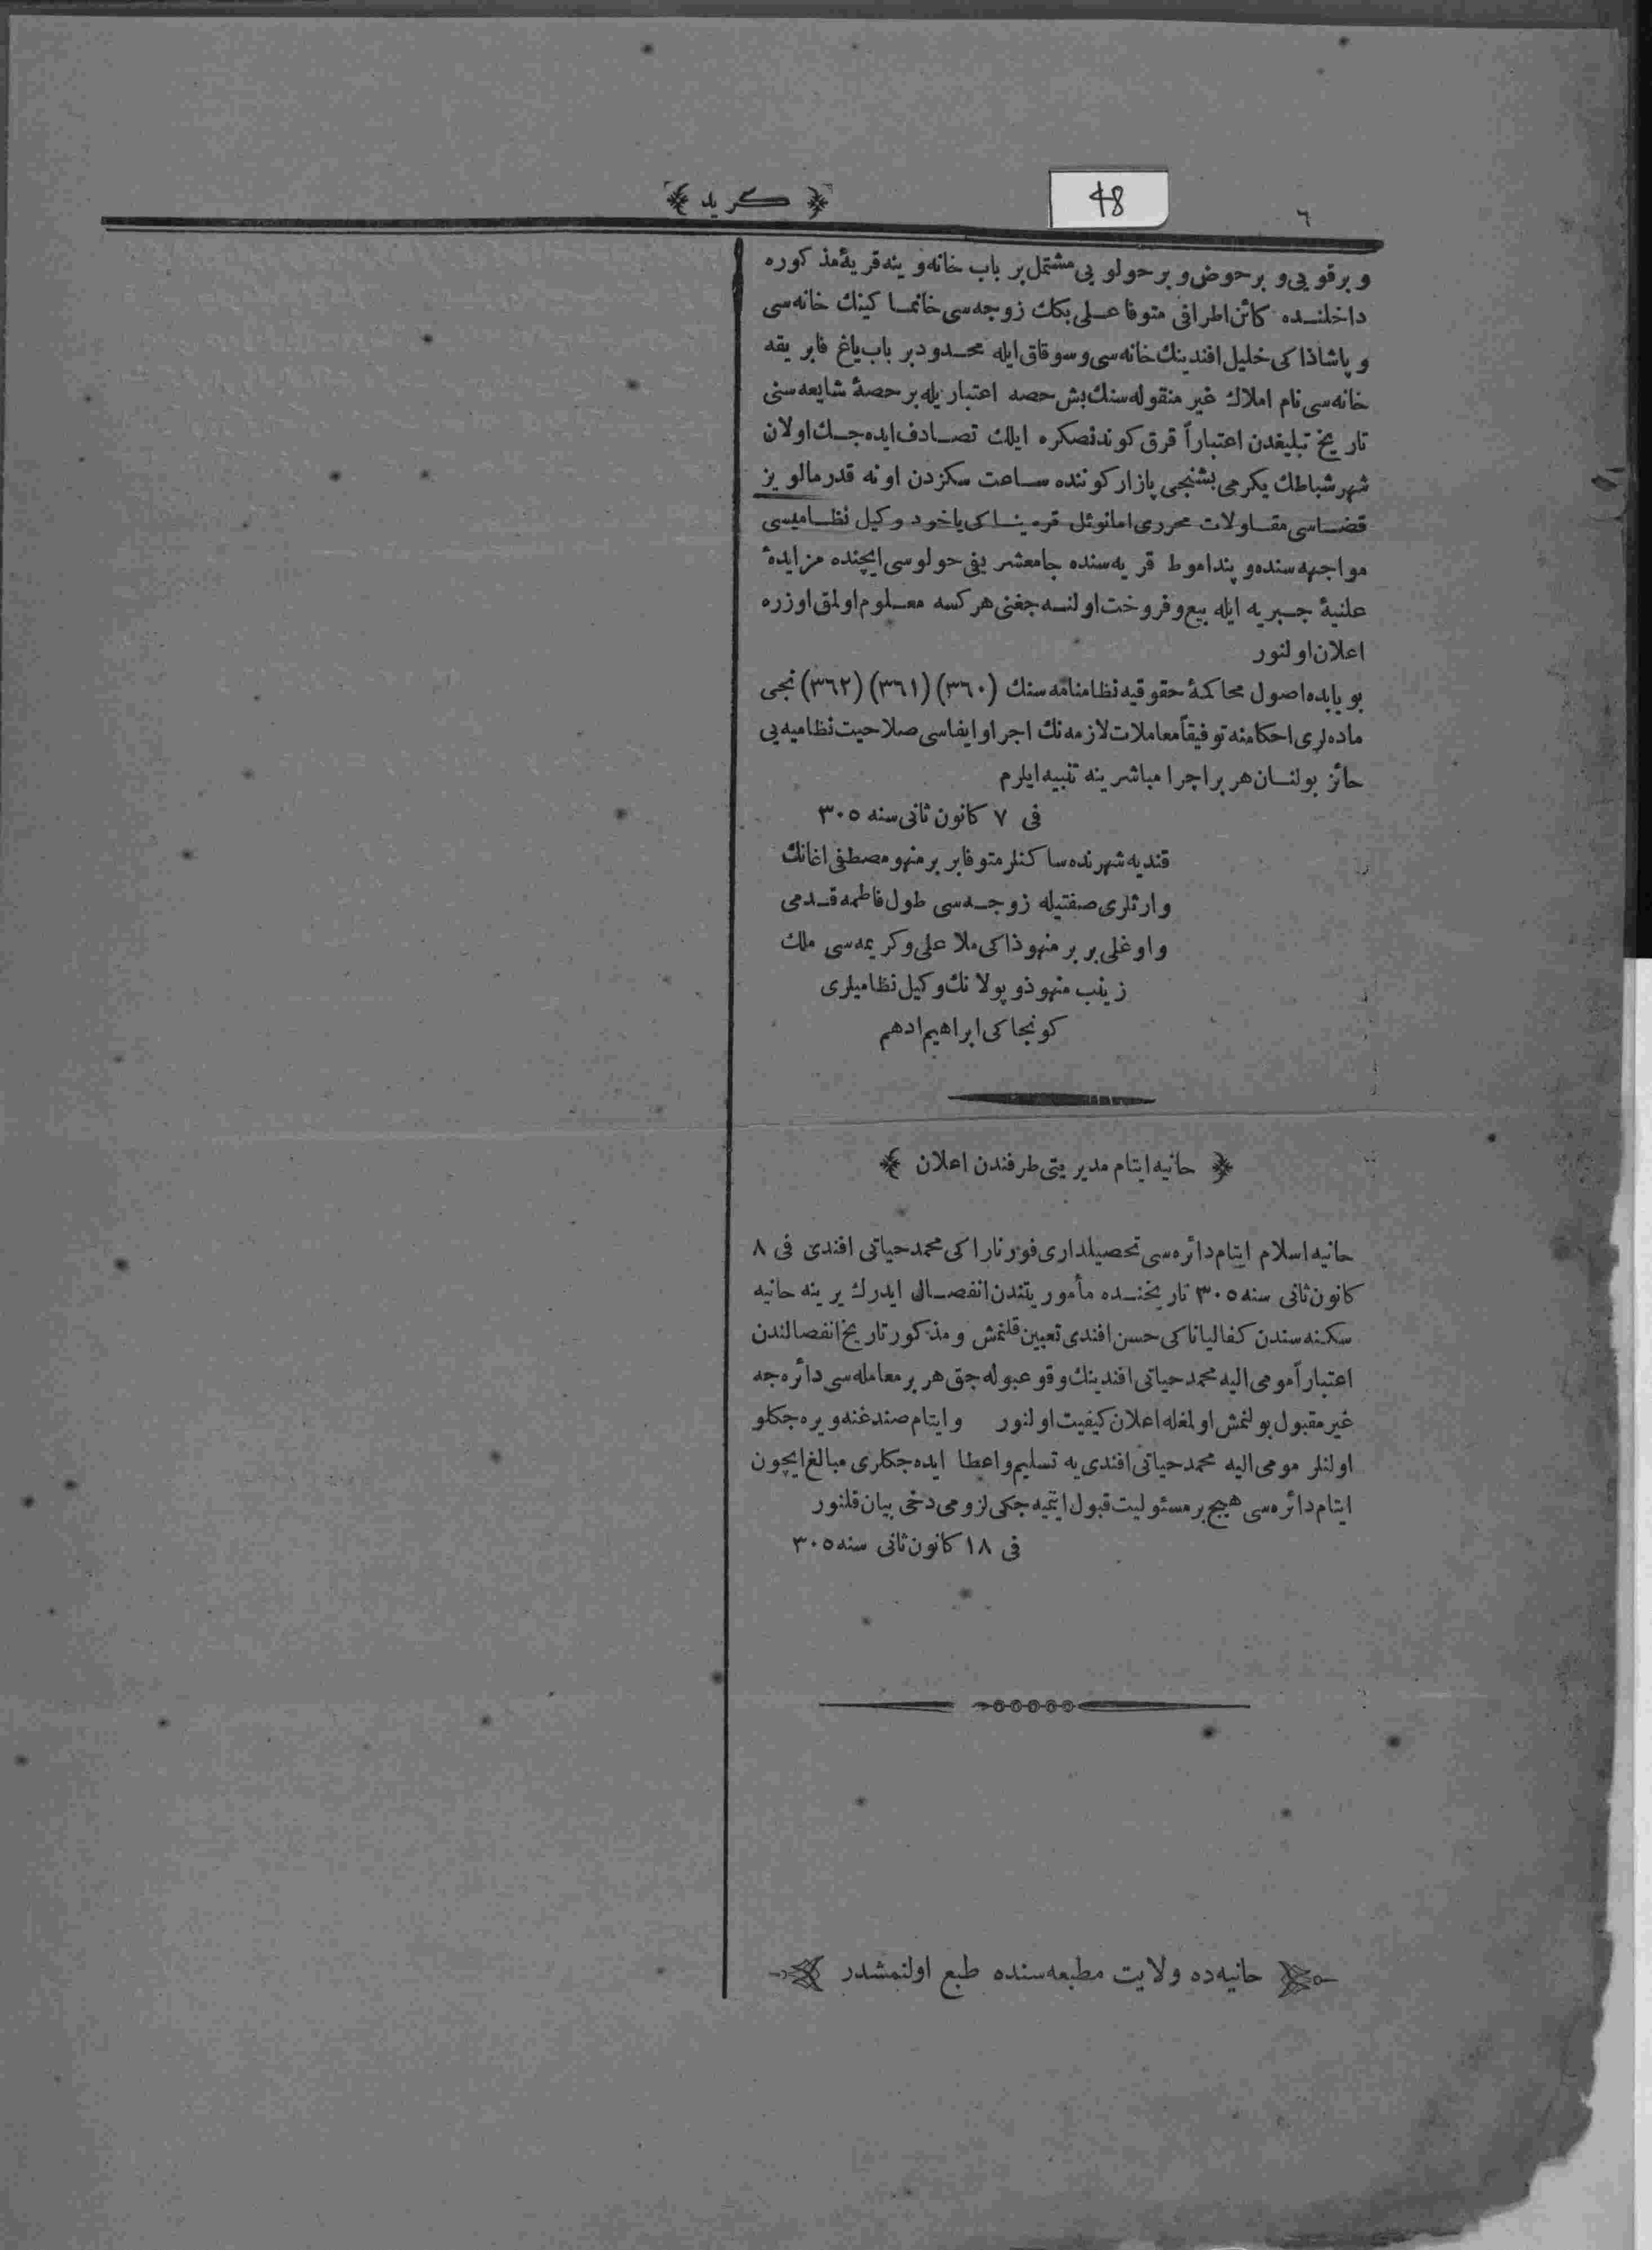 ٦
48
كريد
و بر قويى و بر حوض و بر حولو يى مشتمل بر باب خانه و ينه قريۀ مذكوره
داخلنده كائن اطرافى متوفا على بكك زوجه‌سى خانمـا كينك خانه‌سى
و پاشاذاكى خليل افندينك خانه‌سى و سوقاق ايله محدود بر باب ياغ فابريقه
خانه‌سى نام املاك غير منقوله‌سنك بش حصه اعتباريله بر حصۀ شايعه‌سنى
تاريخ تبليغدن اعتباراً قرق كوندنصكره ايلك تصادف ايده‌جك اولان
شهر شباطك يكرمى بشنجى پازار كوننده ساعت سكزدن اونه قدر مالويز
قضاسى مقاولات محررى امانوئل قرميناكى ياخود وكيل نظاميسى
مواجهه‌سنده و پنداموط قريه‌سنده جامعشريفى حولوسى ايچنده مزايدۀ
علنيۀ جبريه ايله بيع و فروخت اولنه‌جغنى هركسه معلوم اولمق اوزره
اعلان اولنور
بو بابده اصول محاكمۀ حقوقيه نظامنامه‌سنك (٣٦٠) (٣٦١) (٣٦٢) نجى
ماده‌لرى احكامنه توفيقاً معاملات لازمه‌نك اجرا و ايفاسى صلاحيت نظاميه‌يى
حائز بولنان هر بر اجرا مباشرينه تنبيه ايلرم
فى ٧ كانون ثانى سنه ٣٠٥
قنديه شهرنده ساكنلر متوفا بربر منهو مصطفى اغانك
وارثلرى صفتيله زوجه‌سى طول فاطمه قدمى
و اوغلى بربر منهوذاكى ملا على و كريمه‌سى ملك
زينب منهوذوپولانك وكيل نظاميلرى
كونجاكى ابراهيم ادهم
حانيه ايتام مديريتى طرفندن اعلان
حانيه اسلام ايتام دائره‌سى تحصيلدارى فورناراكى محمد حياتى افندى فى ٨
كانون ثانى سنه ٣٠٥ تاريخنده مأموريتندن انفصال ايدرك يرينه حانيه
سكنه‌سندن كفالياناكى حسن افندى تعيين قلنمش و مذكور تاريخ انفصالندن
اعتباراً مومى اليه محمد حياتى افندينك وقوعبوله‌جق هر بر معامله‌سى دائره‌جه
غير مقبول بولنمش اولمغله اعلان كيفيت اولنور و ايتام صندغنه ويره‌جكلو
اولنلر مومى اليه محمد حياتى افندى يه تسليم و اعطا ايده‌جكلرى مبالغ ايچون
ايتام دائره‌سى هيچ بر مسئوليت قبول ايتميه‌جكى لزومى دخى بيان قلنور
فى ١٨ كانون ثانى سنه ٣٠٥
حانيه‌ده ولايت مطبعه‌سنده طبع اولنمشدر